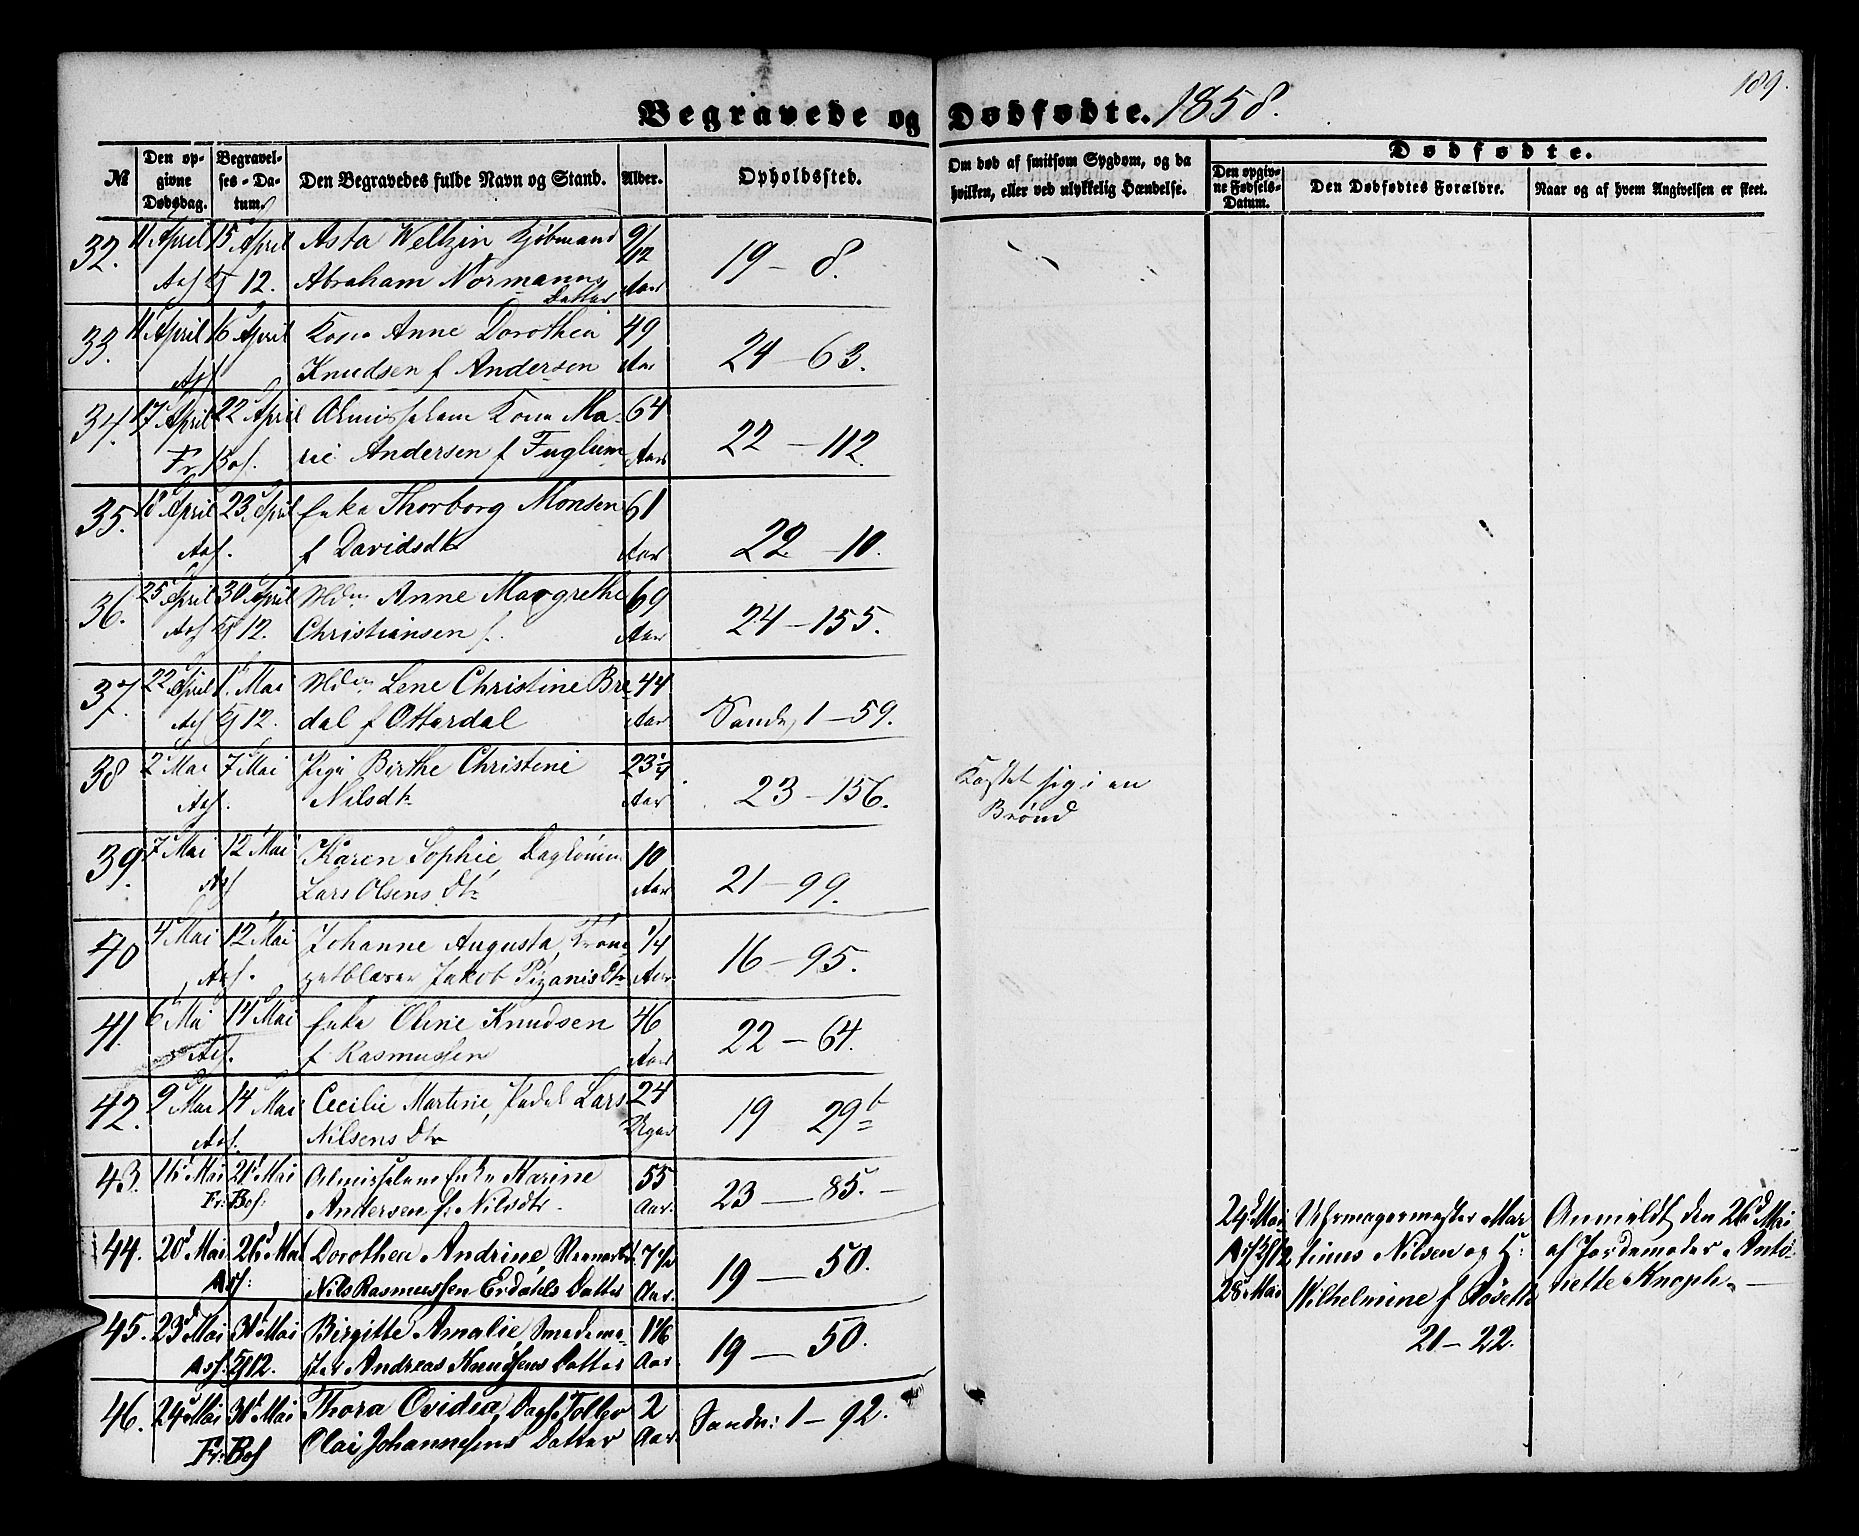 189.
Begravede og Dødfødte. 1858.
№
Den opgivne Dødsdag.
Begravelses-Datum.
Den Begravedes fulde Navn og Stand.
Alder.
Opholdssted.
Om død af smitsom Sygdom, og da hvilken, eller ved ulykkelig Hændelse.
Dødfødte.
Den opgivne Fødsels-Datum.
Den Dødfødtes Forældre.
Naar og af hvem Angivelsen er skeet.
32. 11 April 15 April Asta Weltzin Kjøbmand 9/12
12. Abraham Normanns Datter Aar 19 – 8.
33. 11 April 16 April Kone Anne Dorothea 49
Knudsen f Andersen Aar 24 – 63.
34. 17 April 22 April Almisselem Kone Ma- 64
Fr Bos. rie Andersen f Fuglum Aar 22 – 112.
35. 18 April 23 April Enke Thorborg Monsen 61
f Davidsdtr Aar 22 – 10.
36. 25 April 30 April Mdm Anne Margrethe 69
12. Christiansen f. Aar 24 – 155.
37. 22 April 1 Mai Mdm Lene Christine Bre 44
12. dal f Otterdal Aar Sandv, 1 – 59.
38 2 Mai 7 Mai Pige Birthe Christine 23¼
Nilsdtr Aar 23 – 156.
Kastet sig i en
Brønd
39. 7 Mai 12 Mai Karen Sophie Daglønne 10
Lars Olsens Dtr Aar 21 – 99.
40 4 Mai 12 Mai Johanne Augusta, Trom ¼
petblæser Jakob Pizanis Dtr Aar 16 – 95.
41. 6 Mai 14 Mai Enke Oline Knudsen 46
f Rasmussen Aar 22 – 64.
42. 9 Mai 14 Mai Cecilie Martine, Pedel Lars 24
Nilsens Dtr Dgar 19 29b
43. 16 Mai 21 Mai Almisselem Enke Marine 55
Fr: Bos: Andersen f. Nilsdtr. Aar. 23 – 85. –
44. 20 Mai 26 Mai Dorothea Andrine, 7½
Nils Rasmussen Erdahls Datter Aar. 19 – 50.
45. 23 Mai 31 Mai Birgitte Amalie, Smedeme- 1 1/6
12. ster Andreas Knudsens Datter Aar. 19 – 50.
46. 24 Mai 31 Mai Thora Ovidia, Dagl 2
Fr: Bos Olai Johannesens Datter Aar. Sandv: 1 – 92.
24 Mai Uhrmagermester Mar Anmeldt den 26 Mai
tinus Nilsen og H: af Jordemoder Anto-
28 Mai Wilhelmine f Røseth nette Knoph. –
21 – 22.